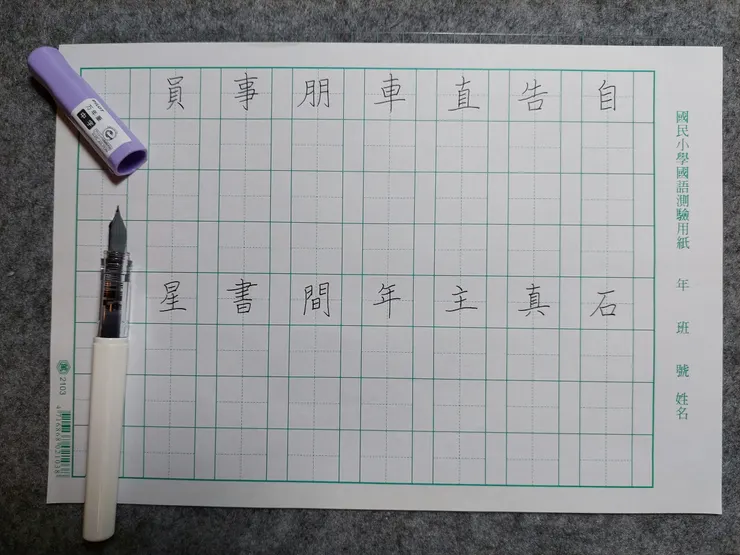 國民小學國語測驗用紙 年 班 號 姓名
自 石
告 真
直 主
車 年
朋 間
事 書
員 星
2103